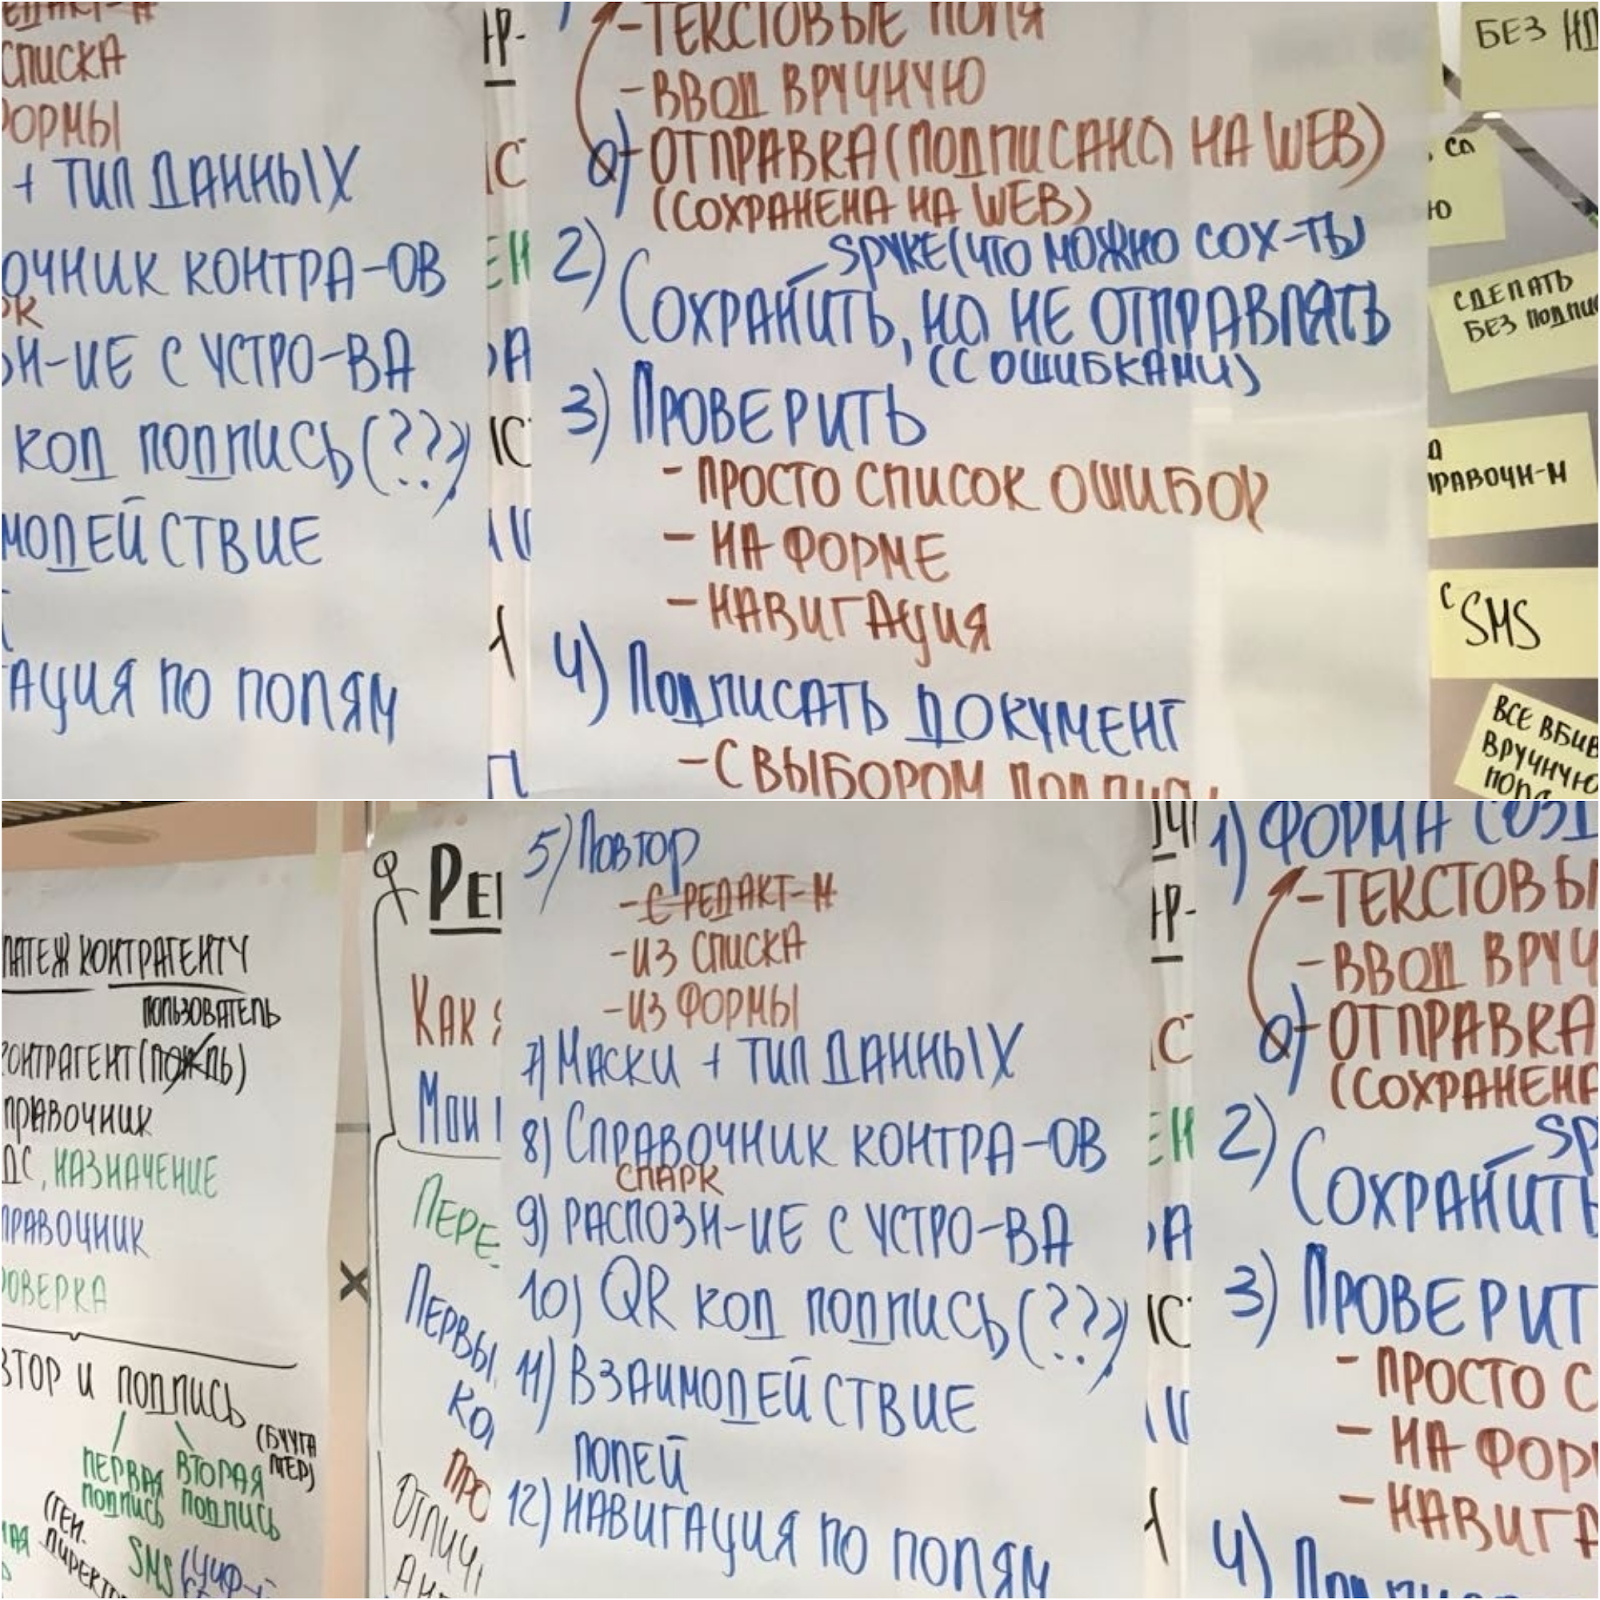 СПИСКА
ФОРМЫ
+ ТИП ДАННЫХ
ОЧНИК КОНТРА-ОВ
РК
ЗН-ИЕ С УСТРО-ВА
КОД ПОДПИСЬ (???)
МОДЕЙСТВИЕ
АЦИЯ ПО ПОЛЯМ
- ТЕКСТОВЫЕ ПОЛЯ
- ВВОД ВРУЧНУЮ
0) - ОТПРАВКА (ПОДПИСАНО НА WEB)
(СОХРАНЕНА НА WEB)
2) СОХРАНИТЬ, НО НЕ ОТПРАВЛЯТЬ
- SPYKE (ЧТО МОЖНО СОХ-ТЬ)
(С ОШИБКАМИ)
3) ПРОВЕРИТЬ
- ПРОСТО СПИСОК ОШИБОК
- НА ФОРМЕ
- НАВИГАЦИЯ
4) ПОДПИСАТЬ ДОКУМЕНТ
- С ВЫБОРОМ ПОДПИСИ
БЕЗ НД
СДЕЛАТЬ
БЕЗ ПОДПИ
РАВОЧН-М
С SMS
ВСЕ ВБИВ
ВРУЧНУЮ
ПОЛЯ
ЛАТЕЖ КОНТРАГЕНТУ
ПОЛЬЗОВАТЕЛЬ
КОНТРАГЕНТ
ПРАВОЧНИК
ДС, НАЗНАЧЕНИЕ
ПРАВОЧНИК
РОВЕРКА
ВТОР И ПОДПИСЬ
ПЕРВАЯ
ПОДПИСЬ
ВТОРАЯ
ПОДПИСЬ
(БУХГА
ЛТЕР)
(ГЕН.
ДИРЕКТО
SMS
РЕ
КАК Я
МОИ
ПЕРЕ
ПЕРВЫ
КО
ПРО
ОТЛИЧ
5) ПОВТОР
- С РЕДАКТ-М
- ИЗ СПИСКА
- ИЗ ФОРМЫ
7) МАСКИ + ТИП ДАННЫХ
8) СПРАВОЧНИК КОНТРА-ОВ
СПАРК
9) РАСПОЗН-ИЕ С УСТРО-ВА
10) QR КОД ПОДПИСЬ (???)
11) ВЗАИМОДЕЙСТВИЕ
ПОЛЕЙ
12) НАВИГАЦИЯ ПО ПОЛЯМ
1) ФОРМА СОЗД
- ТЕКСТОВЫ
- ВВОД ВРУЧ
0) - ОТПРАВКА
(СОХРАНЕНА
2) СОХРАНИТЬ
- SP
3) ПРОВЕРИТ
- ПРОСТО С
- НА ФОР
- НАВИГА
4) ПОДПИС